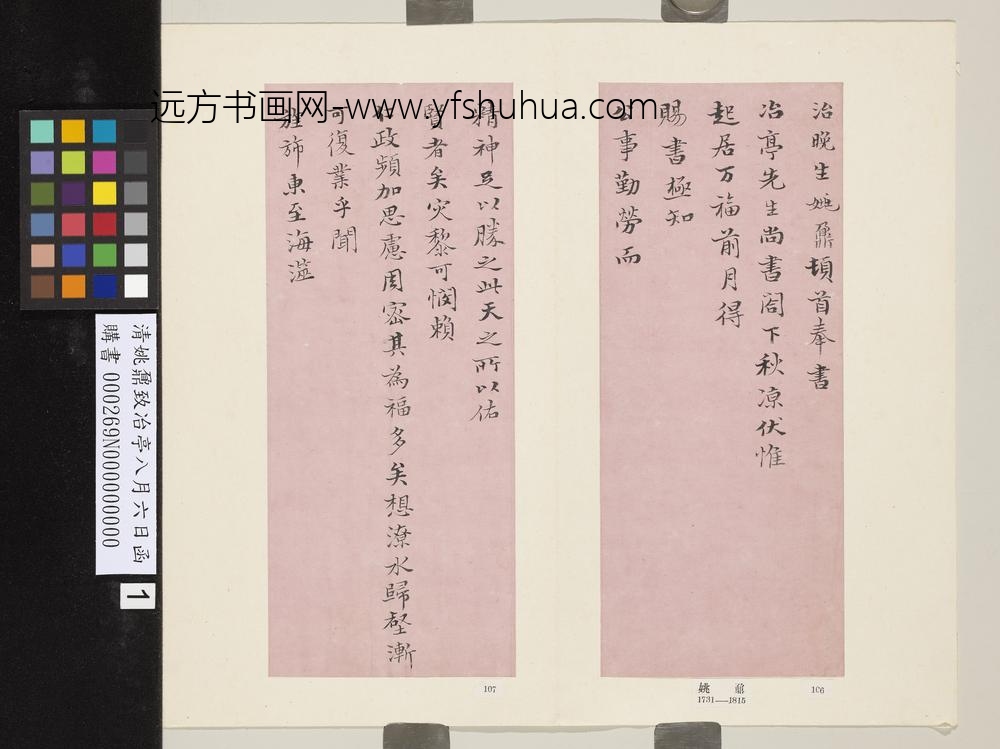 远方书画网-www.yfshuhua.com
治晚生姚鼐頓首奉書
冶亭先生尚書閣下秋涼伏惟
起居万福前月得
賜書極知
公事勤勞而
精神足以勝之此天之所以佑
賢者矣灾黎可憫賴
政頻加思慮周密其為福多矣想潦水歸壑漸
可復業乎聞
旌斾東至海濱
106
姚鼐
1731——1815
107
清姚鼐致冶亭八月六日函
購書 000269N000000000
1